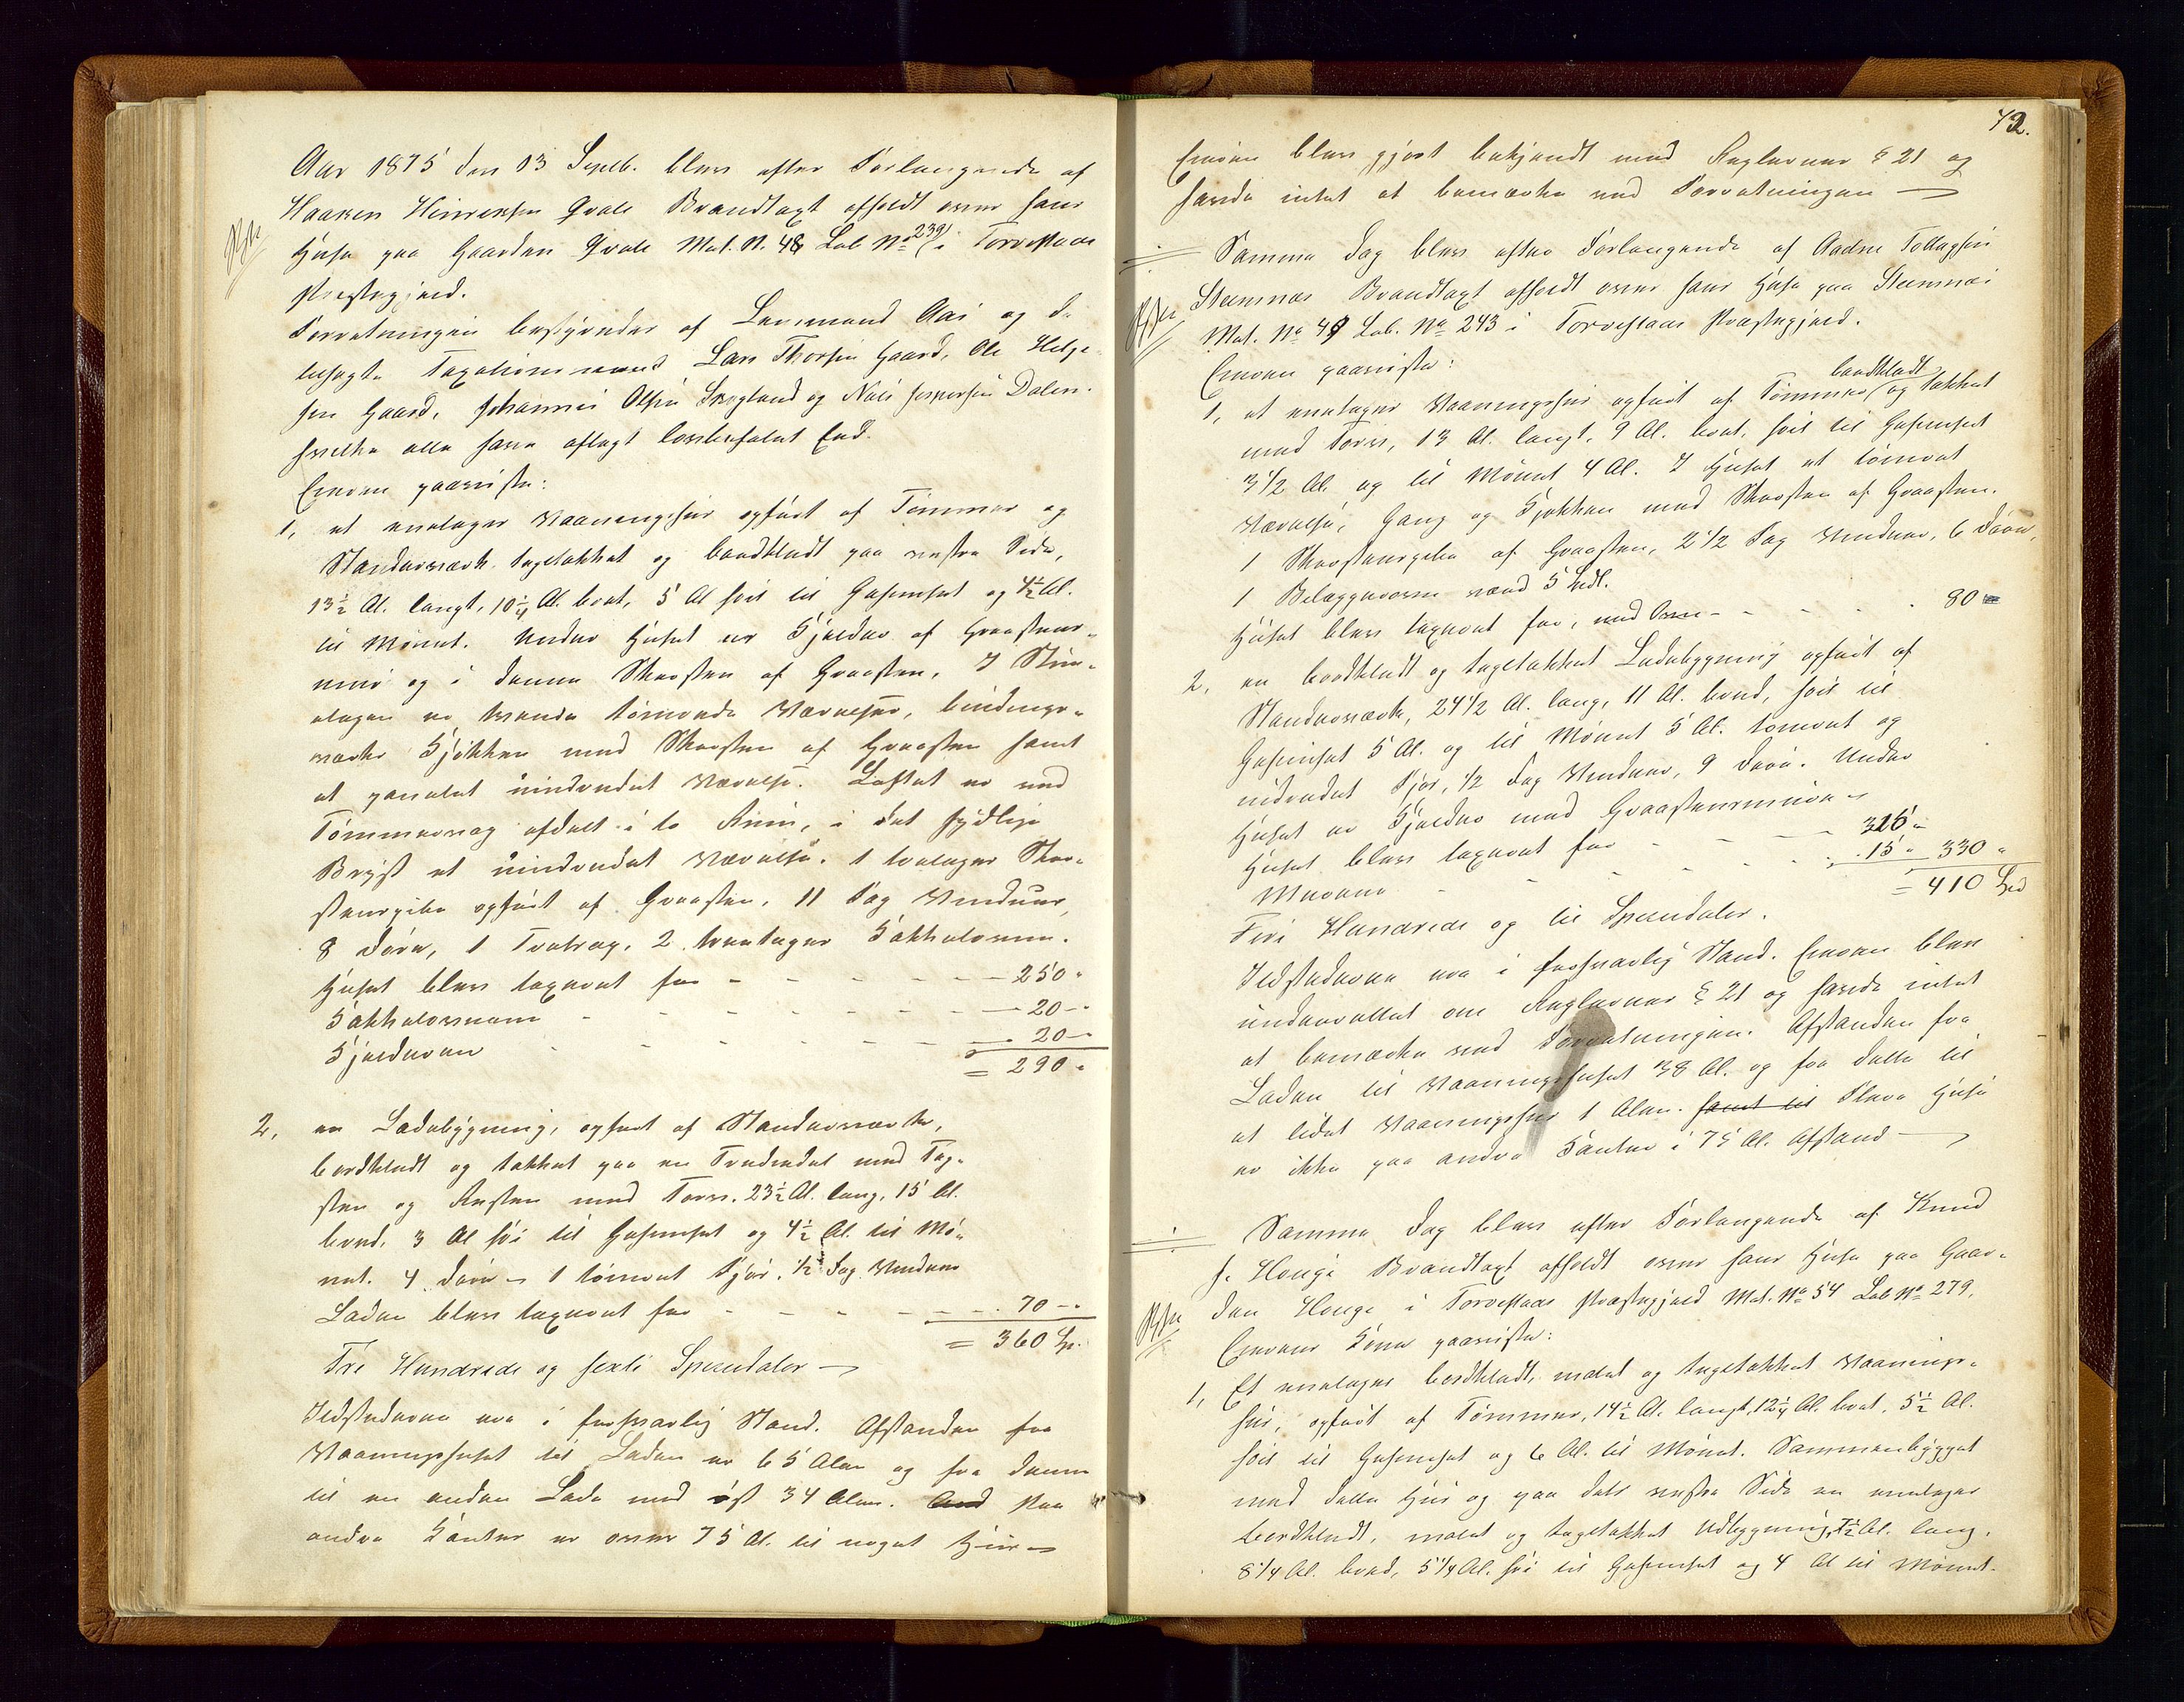 Aar 1875 den 13 Septb. blev efter Forlangende af
Haaken Hinriksen Qvale Brandtaxt afholdt over hans
Huse paa Gaarden Qvale Mat. N. 48 Lub No 239 i Torvestads
Præstegjæld.
Forretningen bestyredes af Lensmand Aas og de
beta Taxationsmænd Lars Thorsen Gaard, Ole Helge-
sen Gaard, Johannes Olsen Skogland og Nils Jespersen Dalen.
hvilke alle have aflagt lovbefalet Eed.
Eieren paaviste:
1, et enetages Vaaningshus opført af Tømmer og
Standerværk tagetækket og bordklædt paa vestre Side,
13½ Al. langt, 10¼ Al. bredt, 5 Al høit til Gesimset og 4½ Al.
til Mønet. Under Huset er Kjelder af Graasteens-
muur og i denne Skorsten af Graasten. I Stue-
etagen er tvende tømrede Værelser, bindings-
værks Kjøkken med Skorsten af Graasten samt
et panelet uindredet Værelse. Loftet er ved
Tømmervæg afdelt i to Rum, i det sydlige
Bryst et uindredet Værelse. 1 toetages Skor-
stenspibe opført af Graasten. 11 Fag Vinduer,
8 Døre, 1 Trætrap, 2 treetages Kakkelovne.
Huset blev taxeret for - - - - - 250 "
Kakkelovnene - - - - - 20 -
Kjelderen - - - - - 20 -
= 290 "
2, en Ladebygning, opført af Standerværk,
bordklædt og tækket paa en Trediedel med Tag-
sten og Resten med Torv. 23½ Al. lang, 15 Al.
bred, 3 Al høi til Gesimset og 4½ Al. til Mø-
net. 4 Døre - 1 tømret Fjøs, ½ Fag Vinduer
Laden blev taxeret for - - - - 70 -
= 360 Sp.
Tre Hundrede og sexti Speciedaler
Ildstederne ere i forsvarlig Stand. Afstanden fra
Vaaningshuset til Laden er 65 Alen og fra denne
til en anden Lade mod øst 34 Alen. Paa
andre Kanter er over 75 Al. til noget Huus
72.
Eieren blev gjort bekjendt med Reglernes § 21 og
havde intet at bemærke ved Forretningen
Samme Dag blev efter Forlangende af Aadne Tollagsen
Stemnæs Brandtaxt afholdt over hans Huse paa Stemnæs
Mat. No 49 Lub. No 243 i Torvestads Præstegjæld.
Eieren paaviste:
bordklædt
1, et enetages Vaaningshus opført af Tømmer og tækket
med Torv, 13 Al. langt, 9 Al. bredt, høit til Gesimset
3½ Al. og til Mønet 4 Al. I Huset et tømret
Værelse, Gang og Kjøkken med Skorsten af Graasten.
1 Skorstenspibe af Graasten, 2½ Fag Vinduer, 6 Døre,
1 Bilæggerovn værd 5 Spdl.
Huset blev taxeret for, med Ovn - - - - 80
2, en bordklædt og tagetækket Ladebygning opført af
Standerværk, 24½ Al. lang, 11 Al. bred, høit til
Gesimset 5 Al. og til Mønet 5 Al. tømret og
indredet Fjøs, ½ Fag Vinduer, 9 Døre. Under
Huset er Kjelder med Graasteensmure
Huset blev taxeret for - - - 315 "
Murene - - - - 15 " 330 "
= 410 Spd
Fire Hundrede og ti Speciedaler.
Ildstederne ere i forsvarlig Stand. Eieren blev
underrettet om Reglernes § 21 og havde intet
at bemærke ved Forretningen. Afstanden fra
Laden til Vaaningshuset 38 Al. og fra dette til
et lidet Vaaningshus 1 Alen. samt til Flere Huse
er ikke paa andre Kanter i 75 Al. Afstand
Samme Dag blev efter Forlangende af Knud
J. Houge Brandtaxt afholdt over hans Huse paa Gaar-
den Houge i Torvestads Præstegjæld Mat. No 54 Lub No 279.
Eierens Kone paaviste:
1, Et enetages bordklædt, malet og tagetækket Vaanings-
hus, opført af Tømmer, 14½ Al. langt, 12¼ Al. bredt, 5½ Al.
høit til Gesimset og 6 Al. til Mønet. Sammenbygget
med dette Hus og paa dets vestre Side en enetages
bordklædt, malet og tagetækket Udbygning, 7½ Al. lang,
8¼ Al. bred, 5¼ Al. høi til Gesimset og 4 Al til Mønet.